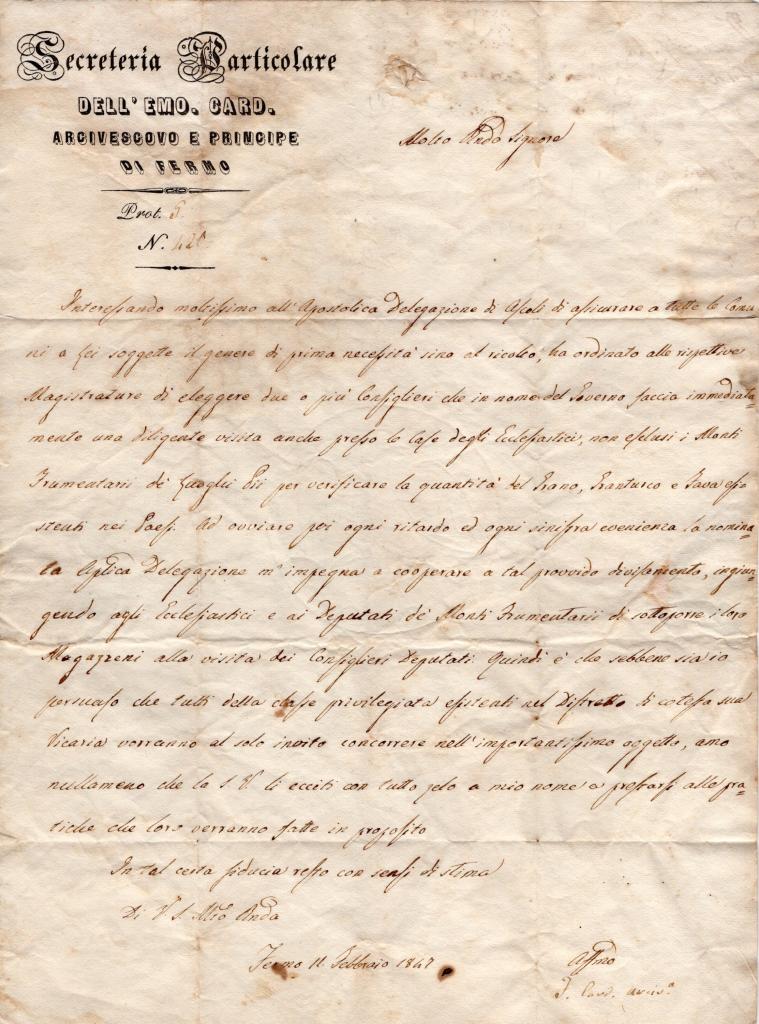 Secreteria Particolare
DELL' EMO. CARD.
ARCIVESCOVO E PRINCIPE
DI FERMO
Prot. 5.
N.
Molto Rndo Signore
Interessando moltissimo all' Apostolica Delegazione di Ascoli di assicurare a tutte le Comu
ni a Lei soggette il genere di prima necessità sino al ricolto, ha ordinato alle rispettive
Magistrature di eleggere due o più Consiglieri che in nome del Governo faccia immediata-
mente una diligente visita anche presso le Case degli Ecclesiastici, non esclusi i Monti
Frumentarii de' Luoghi Pii per verificare la quantità del Grano, Granturco e Fava esi
stenti nei Paesi. Ad ovviare poi ogni ritardo ed ogni sinistra evenienza la nomina-
ta Aplica Delegazione m' impegna a cooperare a tal provvido divisamento, ingiun-
gendo agli Ecclesiastici e ai Deputati de' Monti Frumentarii di sottoporre i loro
Magazzeni alla visita dei Consiglieri Deputati. Quindi è che sebbene sia io
persuaso che tutti della classe privilegiata esistenti nel Distretto di cotesta sua
Vicaria vorranno al solo invito concorrere nell' importantissimo oggetto, amo
nullameno che la S. V. li ecciti con tutto zelo a mio nome a prestarsi alle pra-
tiche che loro verranno fatte in proposito
In tal certa fiducia resto con sensi di stima
Di V. S. Mto Rnda
Fermo 11 Febbraio 1847
Affmo
F. Card. arciv.o